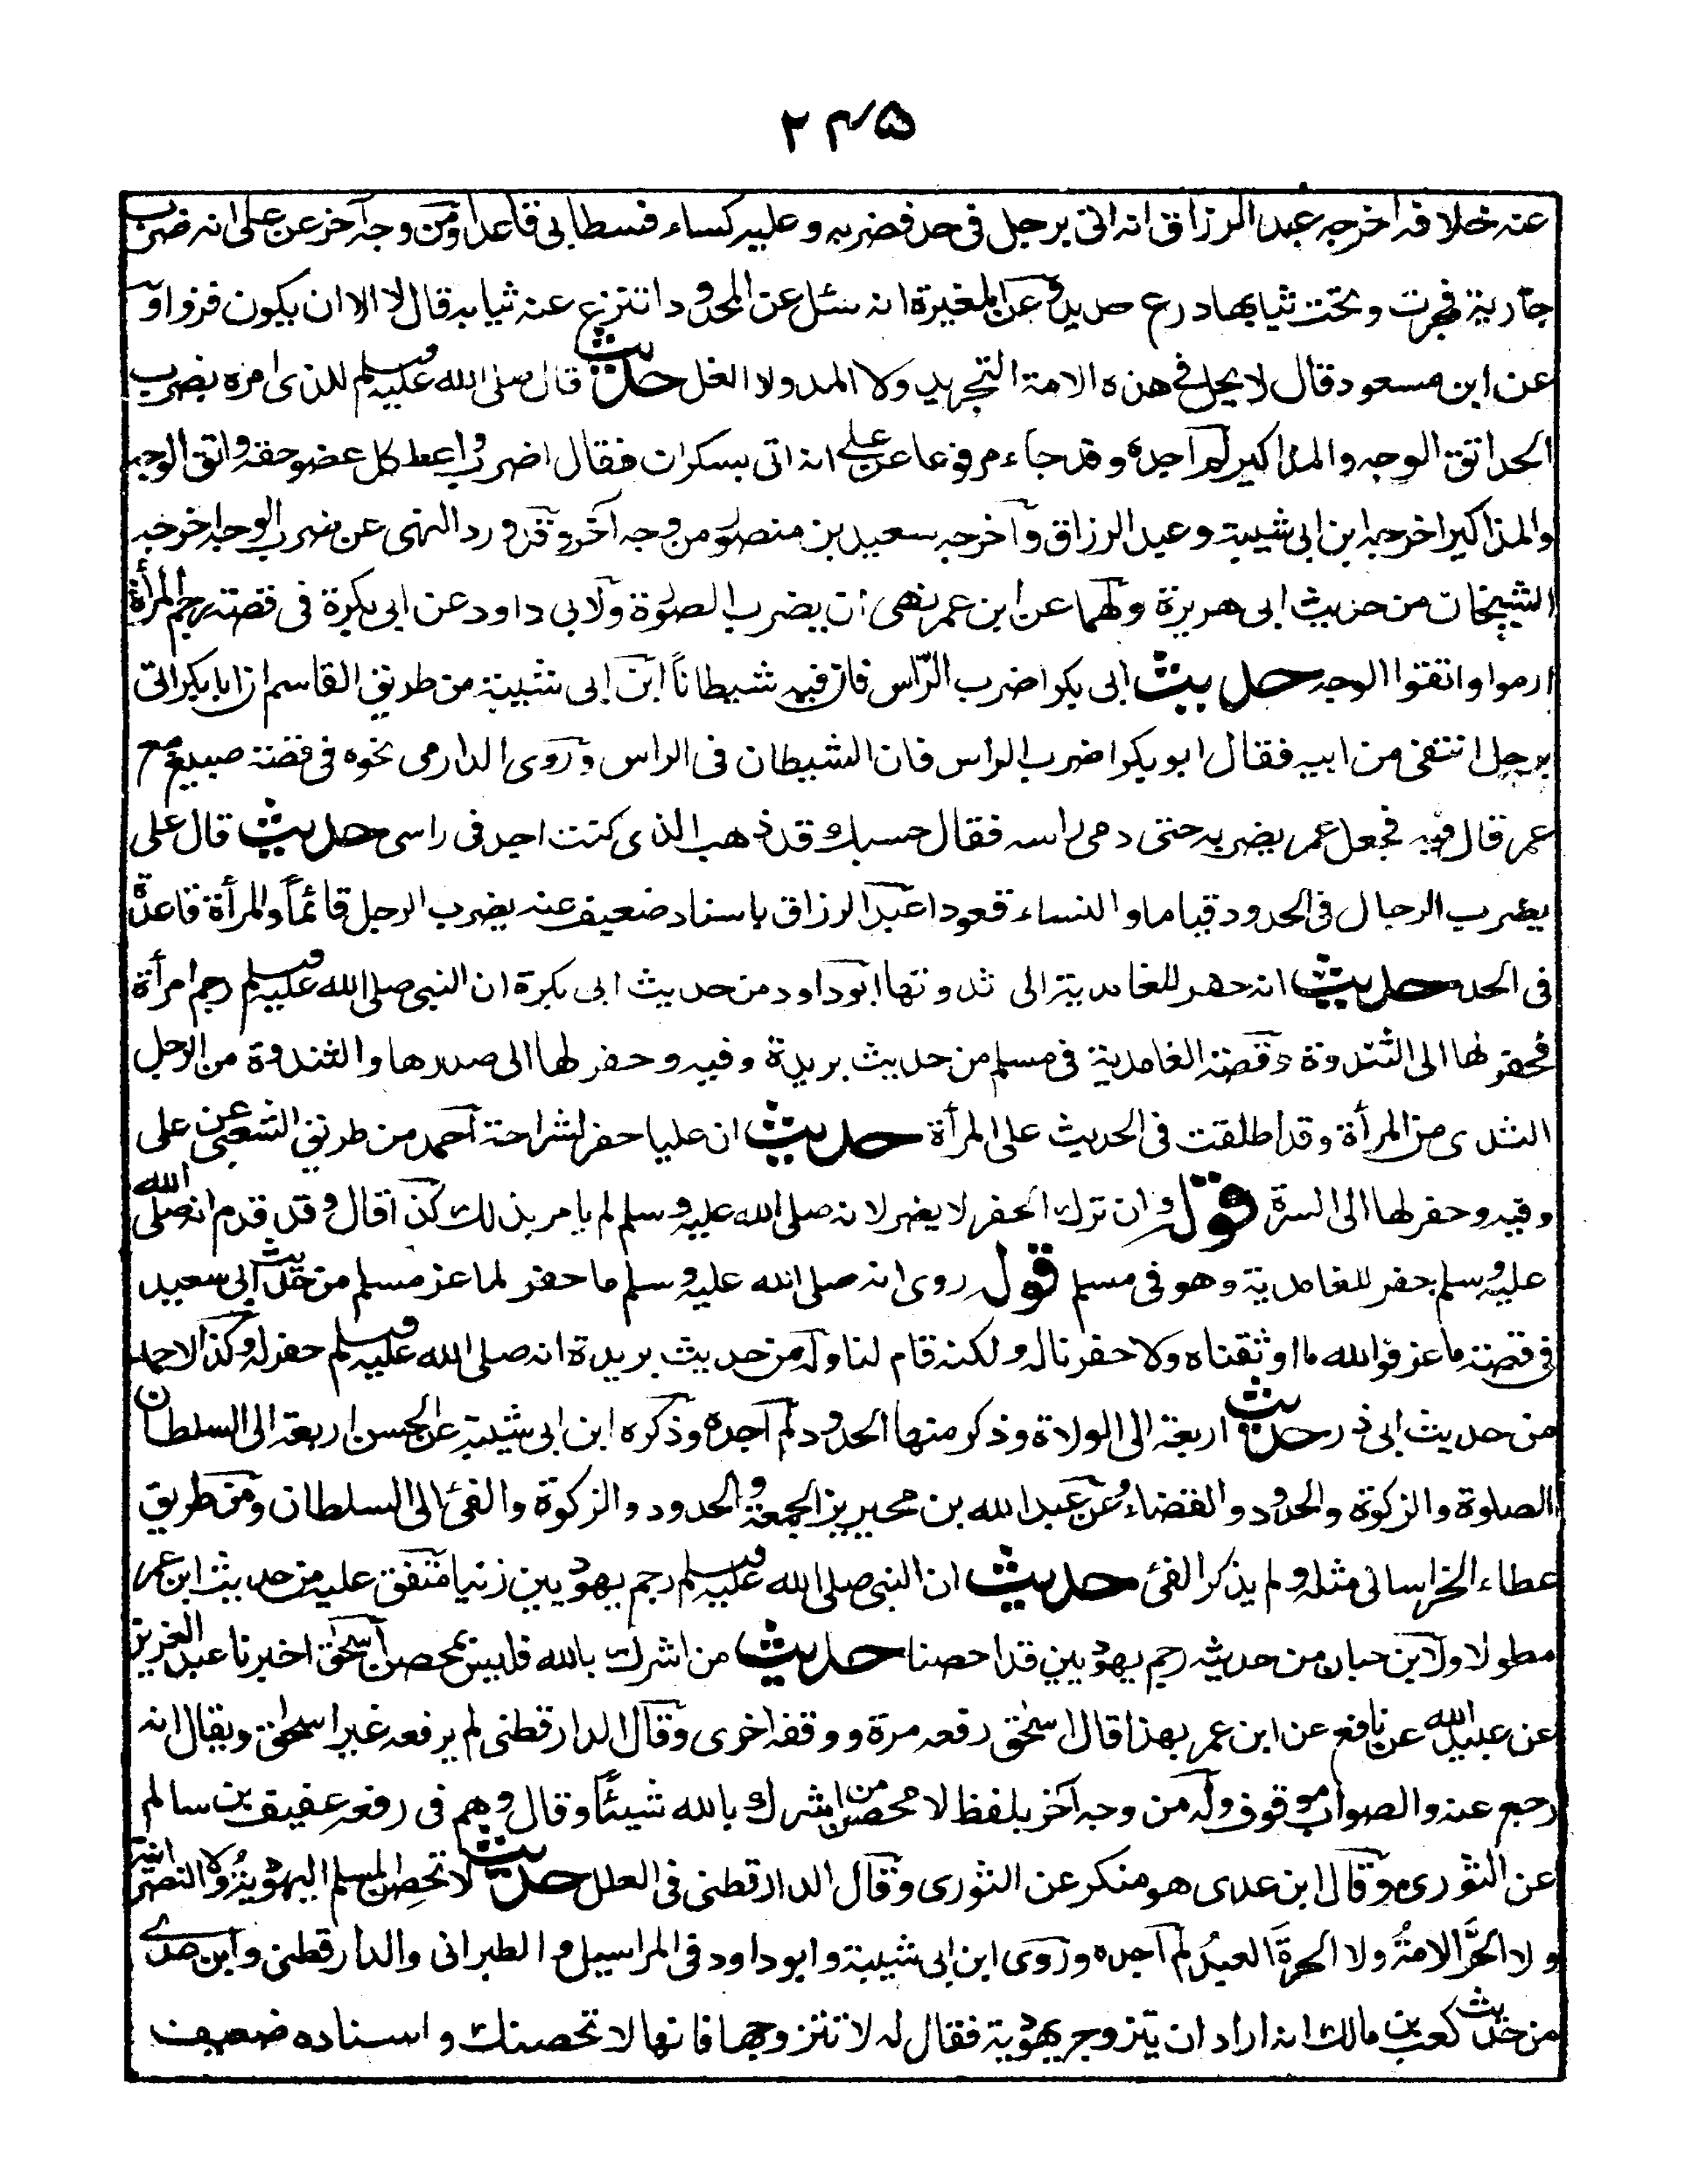 ٢٣٥
عنه خلافه اخرجه عبد الرزاق انه اتى برجل فى حد فضربه وعليه كساء فسطا بى قاعدا ومن وجه آخر عن على انه ضرب
جارية فجرت وتحت ثيابها درع حديد وعن المغيرة انه سئل عن المحدود اتنزع عنه ثيابه قال لا الا ان يكون فروا او
عن ابن مسعود قال لا يحل فى هذه الامة التجريد ولا المد ولا الغل حديث قال صلى الله عليه وسلم للذى امره بضرب
الحد اتق الوجه والمذاكير لم اجده وقد جاء مرفوعا عن على انه اتى بسكران فقال اضرب واعط كل عضو حقه واتق الوجه
والمذاكير اخرجه ابن ابى شيبة وعبد الرزاق وآخرجه سعيد بن منصور من وجه آخر وقد ورد النهى عن ضرب الوجه اخرجه
الشيخان من حديث ابى هريرة ولهما عن ابن عمر نهى ان يضرب الصورة ولابى داود عن ابى بكرة فى قصته رجم المرأة
ارموا واتقوا الوجه حديث ابى بكر اضرب الرأس فان فيه شيطاناً ابن ابى شيبة من طريق القاسم ان ابا بكر اتى
برجل انتفى من ابيه فقال ابو بكر اضرب الراس فان الشيطان فى الراس وروى الدارمى نحوه فى قصة صبيغ مع
عمر قال فيه فجعل عمر يضربه حتى دمى راسه فقال حسبك قد ذهب الذى كنت اجد فى راسى حديث قال على
يضرب الرجال فى الحدود قياما والنساء قعودا عبد الرزاق باسناد ضعيف عنه يضرب الرجل قائماً والمرأة قاعدة
فى الحد حديث انه حفر للغامدية الى ثندوتها ابو داود من حديث ابى بكرة ان النبى صلى الله عليه وسلم رجم امرأة
فحفر لها الى الثندوة وقصة الغامدية فى مسلم من حديث بريدة وفيه وحفر لها الى صدرها والثندوة من الرجل
الثدى من المرأة وقد اطلقت فى الحديث على المرأة حديث ان عليا حفر لشراحة آحمد من طريق الشعبى عن على
وفيه وحفر لها الى السرة قوله وان ترك الحفر لا يضر لانه صلى الله عليه وسلم لم يامر بذلك كذا قال وقد قدم انه صلى الله
عليه وسلم حفر للغامدية وهو فى مسلم قوله روى انه صلى الله عليه وسلم ما حفر لماعز مسلم من حديث ابى سعيد
فى قصة ماعز فوالله ما اوثقناه ولا حفرنا له ولكنه قام لنا وله من حديث بريدة انه صلى الله عليه وسلم حفر له وكذا لاحمد
من حديث ابى ذر حديث اربعة الى الولاة وذكر منها الحدود لم آجده وذكره ابن ابى شيبة عن الحسن اربعة الى السلطان
الصلوة والزكوة والحدود والقضاء وعن عبد الله بن محيريز الجمعة والحدود والزكوة والفئ الى السلطان ومن طريق
عطاء الخراسانى مثله ولم يذكر الفئ حديث ان النبى صلى الله عليه وسلم رجم يهوديين زنيا متفق عليه من حديث ابن عمر
مطولا ولابن حبان من حديثه رجم يهوديين قد احصنا حديث من اشرك بالله فليس بمحصن اسحٰق اخبرنا عبد العزيز
عن عبيد الله عن نافع عن ابن عمر بهذا قال اسحٰق رفعه مرة ووقفه اخرى وقال الدارقطنى لم يرفعه غير اسحاق ويقال انه
رجع عنه والصواب موقوف وله من وجه آخر بلفظ لا محصن من اشرك بالله شيئاً وقال وهم فى رفعه عفيف بن سالم
عن الثورى وقال ابن عدى هو منكر عن الثورى وقال الدارقطنى فى العلل حديث لا تحصن المسلم اليهودية ولا النصرانية
ولا الحرَّ الامةُ ولا الحرةَ العبدُ لم آجده وروى ابن ابى شيبة وابو داود فى المراسيل والطبرانى والدارقطنى وابن عدى
من حديث كعب بن مالك انه اراد ان يتزوج يهودية فقال له لا تتزوجها فانها لا تحصنك واسناده ضعيف